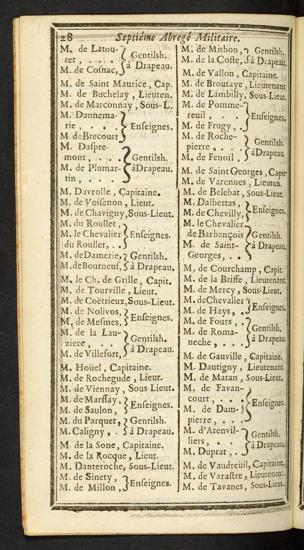 28 Septiéme Abregé Militaire.
M. de Latou-
ret, . . . . } Gentilsh.
M. de Cosnac, } à Drapeau.
M. de Saint Maurice, Cap.
M. de Buchelay, Lieuten.
M. de Marconnay, Sous-L.
M. Dannema-
rie, . . . . } Enseignes.
M de Brecourt
M. Daspre-
mont, . . . . } Gentilsh.
M. de Plumar- } à Drapeau.
tin, . . . .
M. Davrolle, Capitaine.
M. de Voisenon, Lieut.
M. de Chavigny, Sous-Lieut.
M. du Roullet,
M. le Chevalier } Enseignes.
du Roullet, . .
M. de Damerie, } Gentilsh.
M. de Bourneuf, } à Drapeau.
M. le Ch. de Grille, Capit.
M. de Tourville, Lieut.
M. de Coëtrieux, Sous-Lieut.
M. de Nolivos, } Enseignes.
M. de Mesmes,
M. de la Lau-
ziere, . . . } Gentilsh.
M. de Villefort, } à Drapeau.
M. Hoüel, Capitaine.
M. de Rochegude, Lieut.
M. de Viennay, Sous-Lieut.
M. de Marssay, } Enseignes.
M. de Saulon,
M. du Parquet } Gentilsh.
M. Caligny, . . } à Drapeau.
M. de la Sone, Capitaine.
M. de la Rocque, Lieut.
M. Danteroche, Sous-Lieut.
M. de Sinety, } Enseignes.
M. de Millon,
M. de Mithon, } Gentilsh.
M. de la Coste, } à Drapeau.
M. de Vallon, Capitaine.
M. de Broutaye, Lieutenant
M. de Lambilly, Sous-Lieut.
M. de Pomme-
reuil, . . } Enseignes.
M. de Frugy, . .
M. de Roche-
pierre, . . } Gentilsh.
M. de Fenoil, } à Drapeau.
M. de Saint Georges, Capit
M. de Varennes, Lieuten.
M. de Belebat, Sous-Lieut.
M. Dalbertas, } Enseignes.
M. de Chevilly,
M. le Chevalier
de Barbançois } Gentilsh.
M. de Saint- } à Drapeau.
Georges, . .
M. de Courchamp, Capit.
M. de la Briffe, Lieutenant.
M. de Mercy, Sous-Lieut.
M. de Chevalier } Enseignes.
M. de Hays, .
M. de Fours, . } Gentilsh.
M. de Roma- } à Drapeau.
neche, . . .
M. de Gauville, Capitaine.
M. Dautigny, Lieutenant.
M. de Matan, Sous-Lieut.
M. de Favan-
court, . . . } Enseignes.
M. de Dam-
pierre, . . .
M. d'Arenvil-
liers, . . } Gentilsh.
M. Duprat, . . } à Drapeau.
M. de Vaudreüil, Capitaine.
M. de Varastre, Lieutenant.
M. de Tavanes, Sous-Lieut.